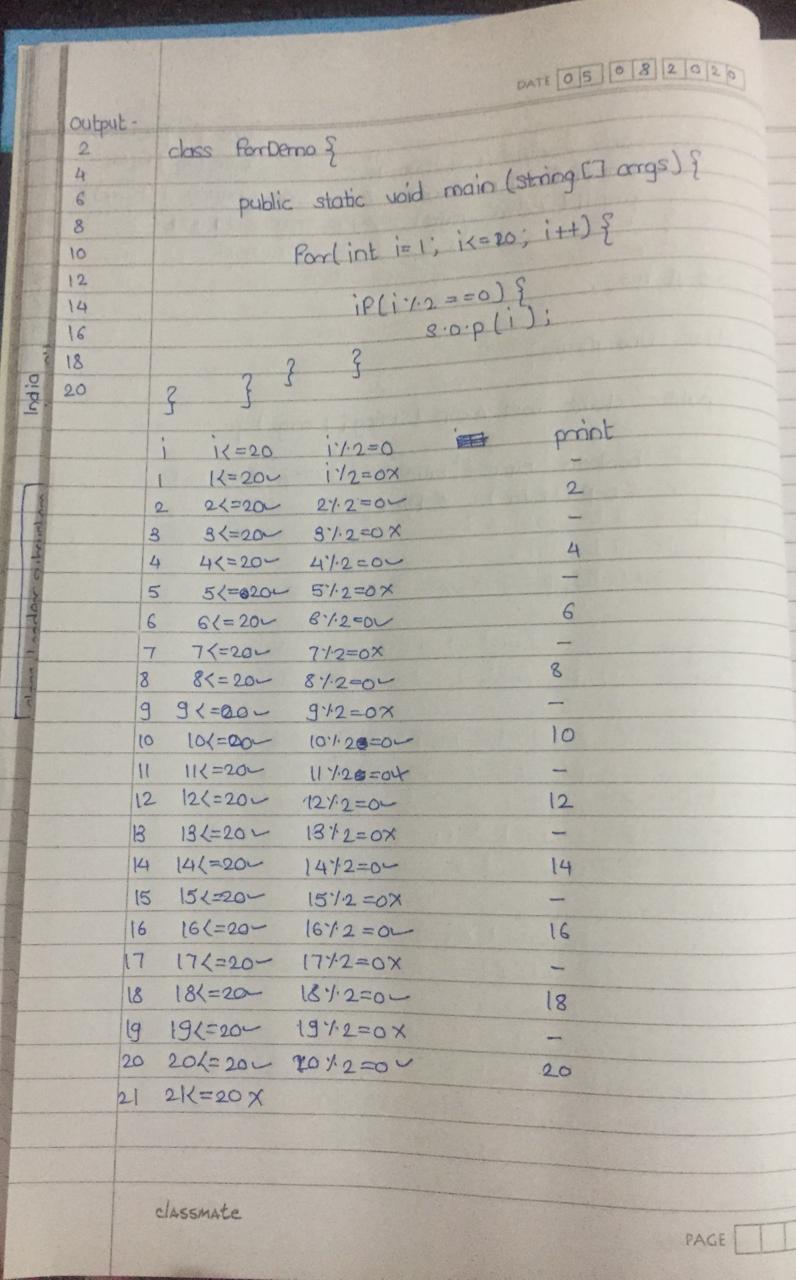 DATE 05 08 2020
output -
2
4
6
8
10
12
14
16
18
20
class ForDemo {
public static void main (string [] args) {
For( int i=1; i<=20; i++) {
if (i%2==0) {
s.o.p (i);
} } } }
i i<=20 i%2=0 print
1 1<=20✓ i%2=0x -
2 2<=20✓ 2%2=0✓ 2
3 3<=20✓ 3%2=0x -
4 4<=20✓ 4%2=0✓ 4
5 5<=20✓ 5%2=0x -
6 6<=20✓ 6%2=0✓ 6
7 7<=20✓ 7%2=0x -
8 8<=20✓ 8%2=0✓ 8
9 9<=20✓ 9%2=0x -
10 10<=20✓ 10%2=0✓ 10
11 11<=20✓ 11%2=0x -
12 12<=20✓ 12%2=0✓ 12
13 13<=20✓ 13%2=0x -
14 14<=20✓ 14%2=0✓ 14
15 15<=20✓ 15%2=0x -
16 16<=20✓ 16%2=0✓ 16
17 17<=20✓ 17%2=0x -
18 18<=20✓ 18%2=0✓ 18
19 19<=20✓ 19%2=0x -
20 20<=20✓ 20%2=0✓ 20
21 21<=20 x
classmate
PAGE
India